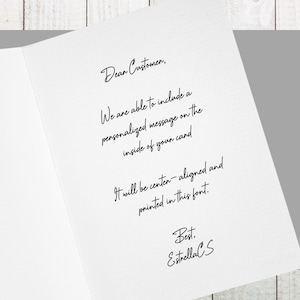 Dear Customer,
We are able to include a
personalized message on the
inside of your card
It will be center-aligned and
printed in this font.
Best,
EstrellaCS